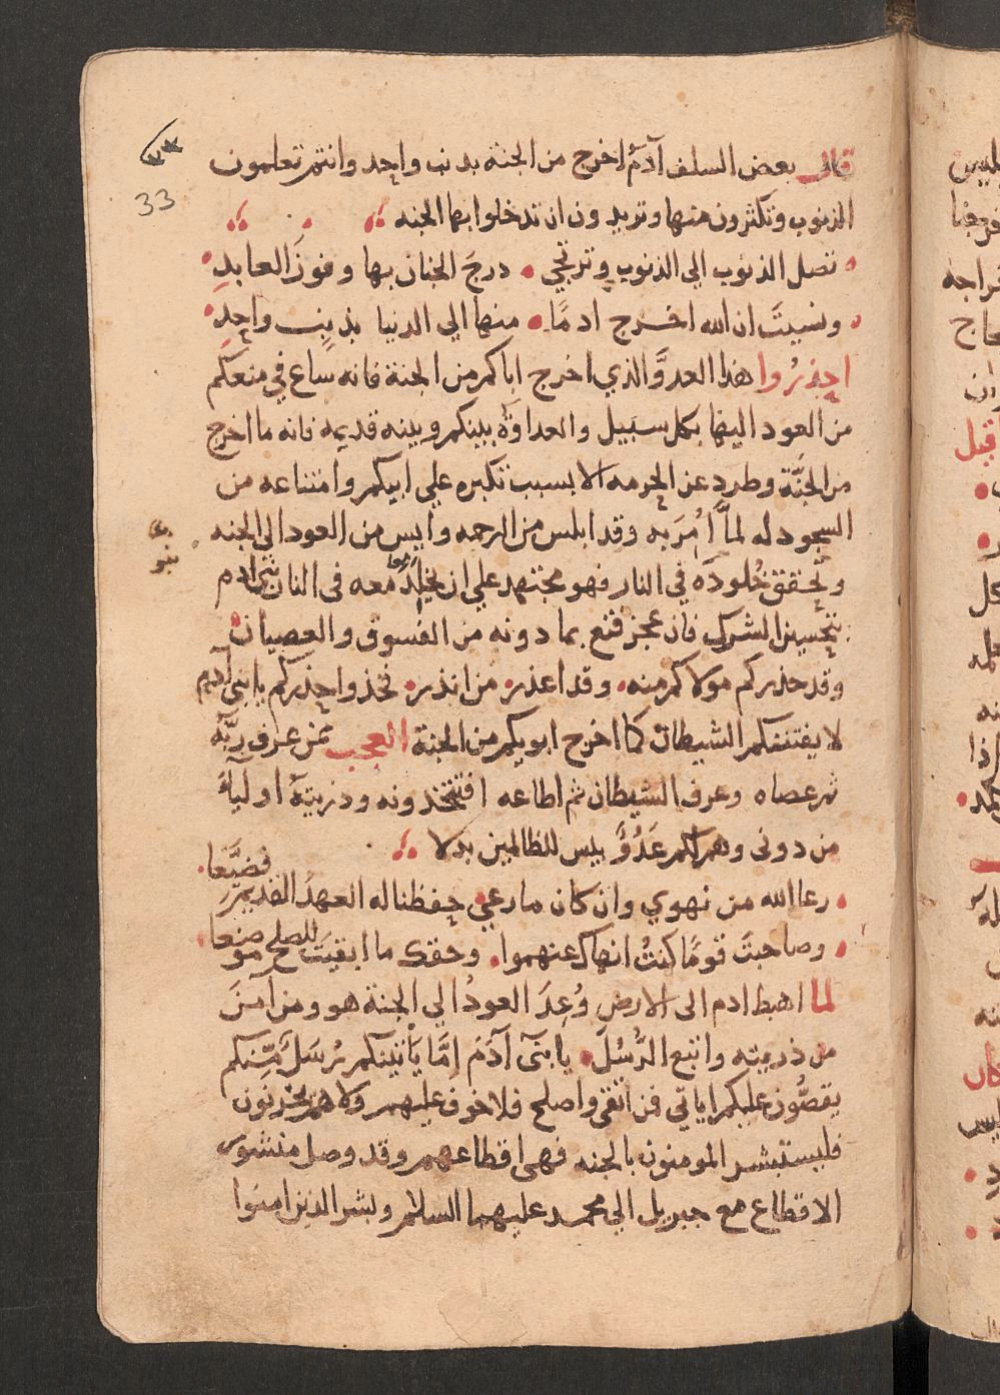 ٣٣
33
قال بعض السلف آدم اخرج من الجنة بذنب واحد وانتم تعلمون
الذنوب وتكثرون منها وتريدون ان تدخلوا بها الجنه
تصل الذنوب الي الذنوب وترتجي درجَ الجنان بها وفوزَ العابدِ
ونسيتَ ان الله اخرج ادمًا منها الي الدنيا بذنبٍ واحدِ
احذرُوا هذا العدوَّ الذي اخرج اباكم من الجنة فانه ساع في منعكم
من العود اليها بكل سبيل والعداوةُ بينكم وبينه قديمه فانه ما اخرج
من الجنَّة وطرد عن الحرمه الا بسبب تكبره علي ابيكم وامتناعه من
السجود له لمَّا اُمِرَ به وقد ابلس من الرحمه وأيس من العود الي الجنه
وتحقق خُلودَه في النار فهو مجتهد علي ان يخلد معه في النار بني ادم
بتحسين الشرك فان عجز قنع بما دونه من الفسوق والعصيان
وقد حذركم مولاكم منه وقد اعذر من انذر فخذوا حذركم يا بني آدم
لا يفتننكم الشيطان كما اخرج ابويكم من الجنة العجب ممن عرف ربَّه
ثم عصاه وعرف الشيطان ثم اطاعه افتتخذونه وذريتهُ اوليآءَ
من دوني وهم لكم عَدُوٌّ بيس للظالمين بدلا
رعا الله من نهوي وان كان ما رعي حفظنا له العهدُ القديم فضيَّعا
وصاحبتَ قومًا كنتُ انهاك عنهموا وحقك ما ابقيتَ للصلح موضعا
لما اهبط ادم الى الارض وُعِدَ العودُ الي الجنة هو ومن آمنَ
من ذريته واتبع الرُّسُلَ يا بنَي آدَمَ اِمَّا يَأتينكم رُسَلٌ مّنِكم
يقصُّون عليكم اياتي فمن اتقى واصلح فلا خوف عليهم ولا هم يحزنون
فليستبشر المومنون بالجنه فهى اقطاعهم وقد وصل منشور
الاقطاع مع جبريل الي محمد عليهما السلام وبشر الذين امنوا